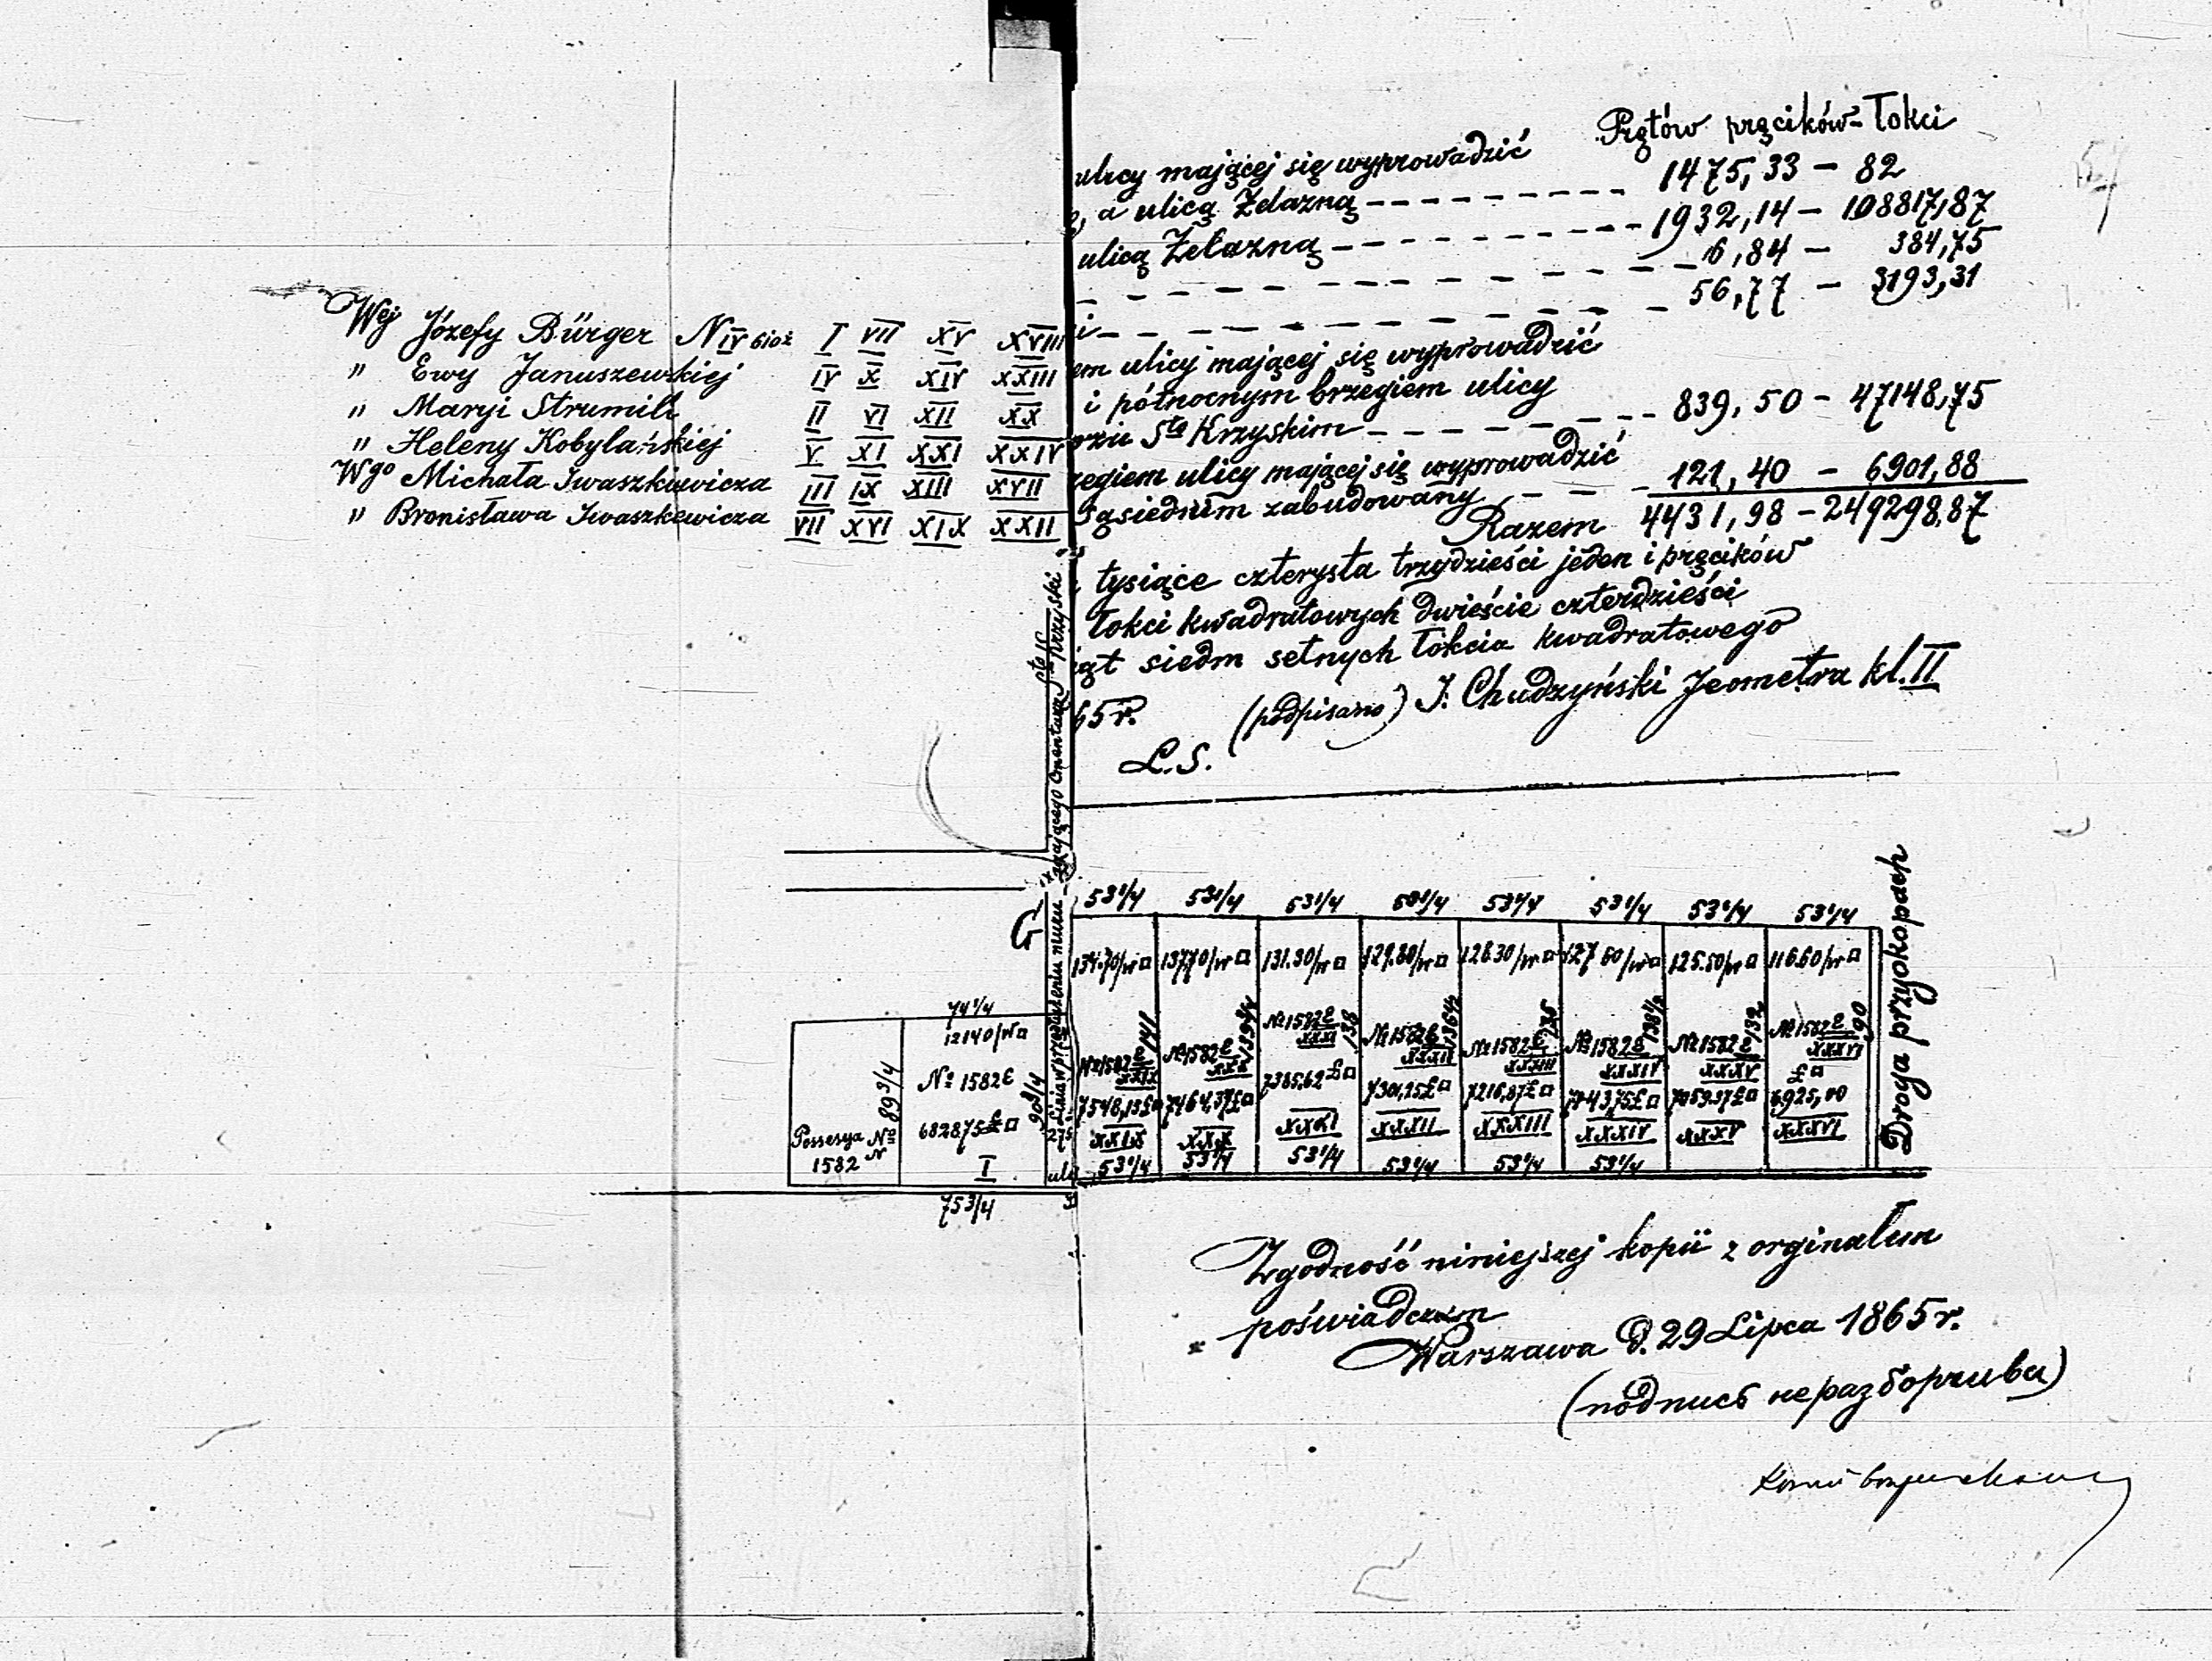 Prętów pręcików - Łokci
ulicy mającej się wyprowadzić 1475,33 - 82
a ulicą Żelazną - - - - - - - - - 1932,14 - 108817,87
ulicą Żelazną - - - - - - - - - - 6,84 - 384,75
- - - - - - - - - - - 56,77 - 3193,31
i - - - - - - - - - -
em ulicy mającej się wyprowadzić
i północnym brzegiem ulicy
Sto Krzyskim - - - - - - - 839,50 - 47148,75
zegiem ulicy mającej się wyprowadzić
sąsiednim zabudowany - - - 121,40 - 6901,88
Razem 4431,98 - 249298,87
tysiące czterysta trzydzieści jeden i pręcików
Łokci kwadratowych dwieście czterdzieści
siedm setnych Łokcia kwadratowego
65 r. (podpisano) J. Chudzyński Jeometra kl. II
L.S.
Wej Józefy Bürger N IV I VII XV XVIII
" Ewy Januszewskiej IV X XIV XXIII
" Maryi Strumiłł II VI XII XX
" Heleny Kobylańskiej V XI XXI XXIV
Wgo Michała Iwaszkiewicza III IX XIII XVII
" Bronisława Iwaszkiewicza VII XVI XIX XXII
Cmentarz Sto Krzyski
G
53 1/4 53 1/4 53 1/4 53 1/4 53 1/4 53 1/4 53 1/4
134.70 137.70 131.30 129.80 128.30 127.60 125.50 116.60
№ 1582 E XXIX 141
№ 1582 E XXX 139 3/4
№ 1582 E XXXI 138
№ 1582 E XXXII 136 1/2
№ 1582 E XXXIII 135
№ 1582 E XXXIV
№ 1582 E XXXV 132
№ 1582 E XXXVI 90
7548,13 Ł 7464,37 Ł 7385,62 Ł 7301,25 Ł 7216,87 Ł 7143,75 Ł 7059,37 Ł 6925,00 Ł
XXIX XXX XXXI XXXII XXXIII XXXIV XXXV XXXVI
53 1/4 53 1/4 53 1/4 53 1/4 53 1/4 53 1/4
Droga przy okopach
74 1/4
12140
№ 1582 E
89 3/4
90 3/4
682875 Ł
I
Possesya № 1582 N
75 3/4
Zgodność niniejszej kopii z orginałem
poświadczam
Warszawa D. 29 Lipca 1865 r.
(подпись неразборчива)